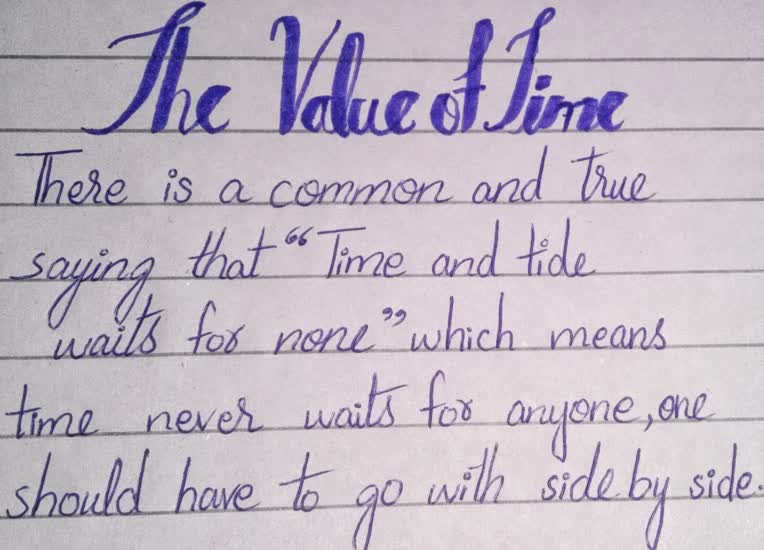 The Value of Time
There is a common and true
saying that “Time and tide
waits for none” which means
time never waits for anyone, one
should have to go with side by side.